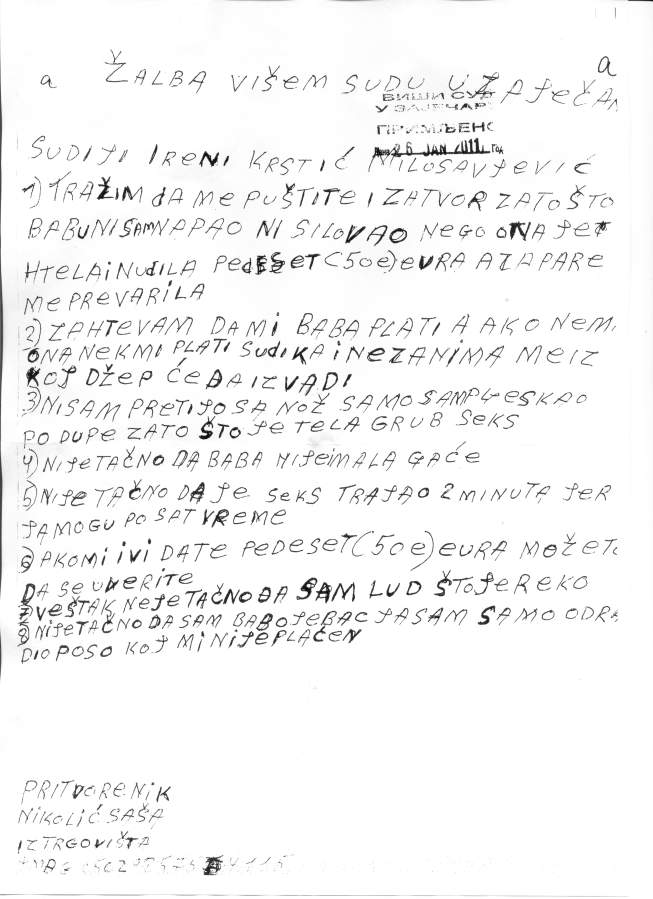 a
a ŽALBA VIŠEM SUDU U ZAJEČAR
ВИШИ СУД
У ЗАЈЕЧАР
ПРИМЉЕНО
26 JAN 2011 год
SUDIJI IRENI KRSTIĆ MILOSAVJEVIĆ
1) TRAŽIM DA ME PUŠTITE IZATVOR ZATO ŠTO
BABU NISAM NAPAO NI SILOVAO NEGO ONA JET
HTELA I NUDILA PEDESET (50e) EURA A ZA PARE
ME PREVARILA
2) ZAHTEVAM DA MI BABA PLATI A AKO NEM
ONA NEK MI PLATI SUDIKA I NEZANIMA ME IZ
KOJ DŽEP ĆE DA IZVADI
3) NISAM PRETIJO SA NOŽ SAMO SAM PLJESKAO
PO DUPE ZATO ŠTO JE TELA GRUB SEKS
4) NIJE TAČNO DA BABA NIJE IMALA GAĆE
5) NIJE TAČNO DA JE SEKS TRAJAO 2 MINUTA JER
JA MOGU PO SAT VREME
6) AKO MI I VI DATE PEDESET (50e) EURA MOŽETE
DA SE UVERITE
7 VEŠTAK NEJE TAČNO DA SAM LUD ŠTO JE REKO
8) NIJE TAČNO DA SAM BABOJEBAC JA SAM SAMO ODRA
DIO POSO KOJ MI NIJE PLAĆEN
PRITVORENIK
NIKOLIĆ SAŠA
IZ TRGOVIŠTA